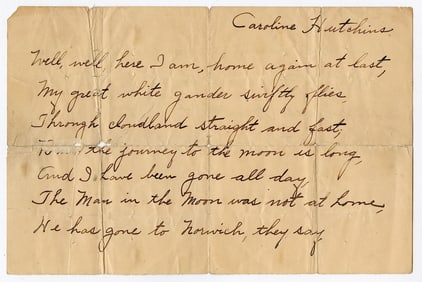 Caroline Hutchins
Well, well, here I am, home again at last,
My great white gander swiftly flies,
Through cloudland straight and fast,
the journey to the moon is long,
And I have been gone all day,
The Man in the Moon was not at home,
He has gone to Norwich, they say,